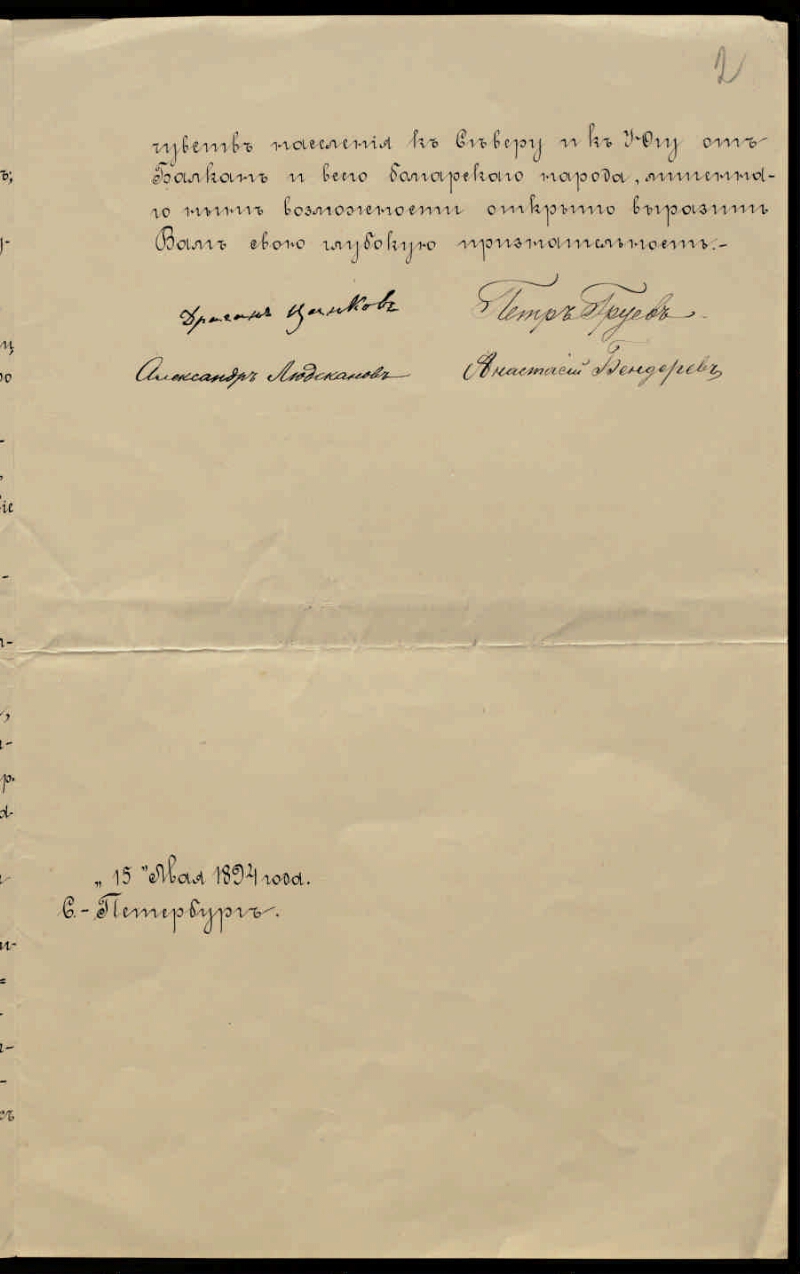 2
чувствъ населенія къ Сѣверу и къ Югу отъ
Балканъ и всего болгарскаго народа, лишенна-
го нынѣ возможности открыто выразить
Вамъ свою глубокую признательность.-
Драганъ Цанковъ Петръ Груевъ
Александръ Людскановъ Анастасій Бендеревъ
„15" Мая 1894 года.
С.-Петербургъ.